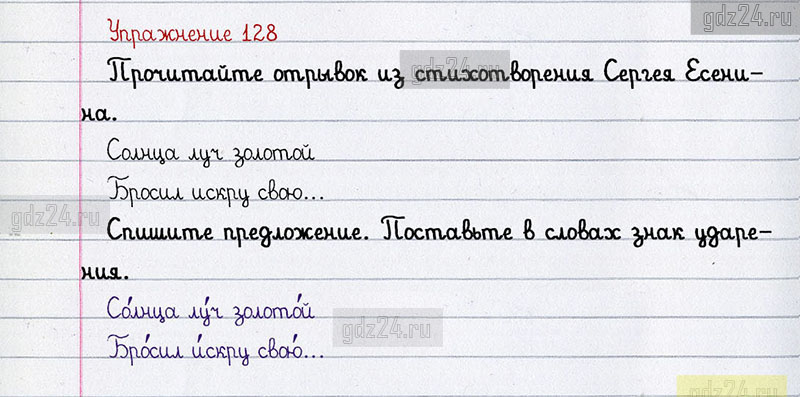 gdz24.ru
Упражнение 128
Прочитайте отрывок из стихотворения Сергея Есени-
gdz24.ru
на.
Солнца луч золотой
Бросил искру свою...
gdz24.ru
Спишите предложение. Поставьте в словах знак ударе-
ния.
Со́лнца лу́ч золото́й
gdz24.ru
Бро́сил и́скру свою́...
gdz24.ru